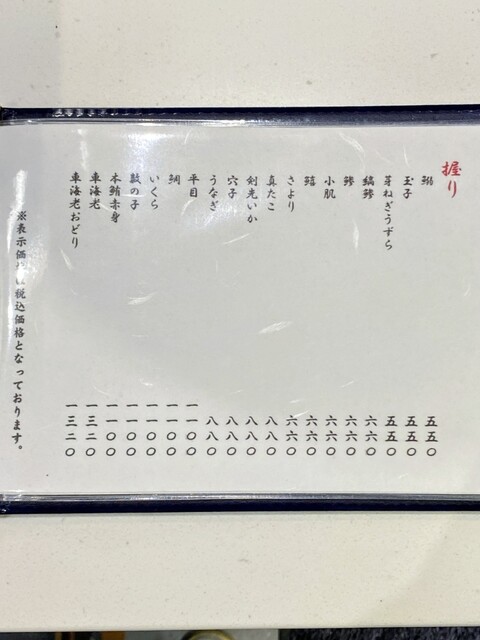 握り
鰯 五五〇
玉子 五五〇
芽ねぎうずら 五五〇
縞鯵 六六〇
鯵 六六〇
小肌 六六〇
鱚 六六〇
さより 六六〇
真たこ 八八〇
剣先いか 八八〇
穴子 八八〇
うなぎ 八八〇
平目 一一〇〇
鯛 一一〇〇
いくら 一一〇〇
数の子 一一〇〇
本鮪赤身 一一〇〇
車海老 一三二〇
車海老おどり 一三二〇
※表示価格は税込価格となっております。